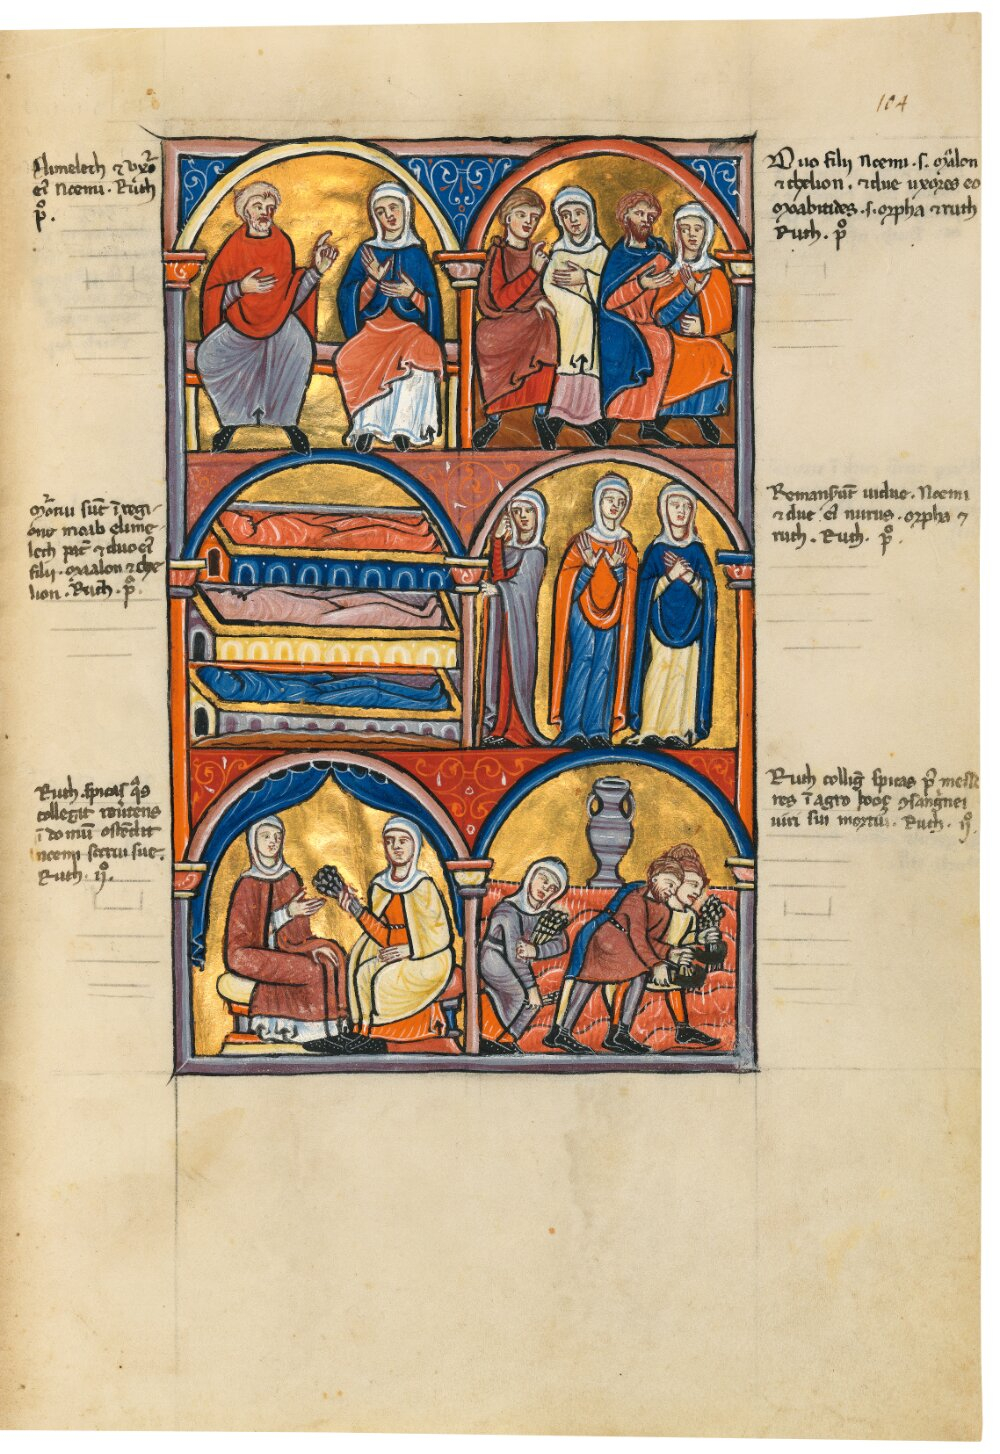 104
Elimelech ⁊ vxor
ei' Noemi . Ruth
p°.
Duo filij Noemi .s. Maalon
⁊ chelion . ⁊ due uxores eo
moabitides .s. orpha ⁊ ruth
Ruth . p°
Mortui sūt ī regi-
one moab elime-
lech pat' ⁊ duo ei'
filij . maalon ⁊ che
lion . Ruth . p°.
Remanserūt uidue . Noemi
⁊ due ei' nurus . orpha ⁊
ruth . Ruth . p°.
Ruth . spicas q̄s
collegit reuertens
ī domū ostendit
noemi socrui sue .
Ruth . ij°.
Ruth colliḡ spicas p' messo
res ī agro booz ɔsanguinei
uiri sui mortui . Ruth . ij°